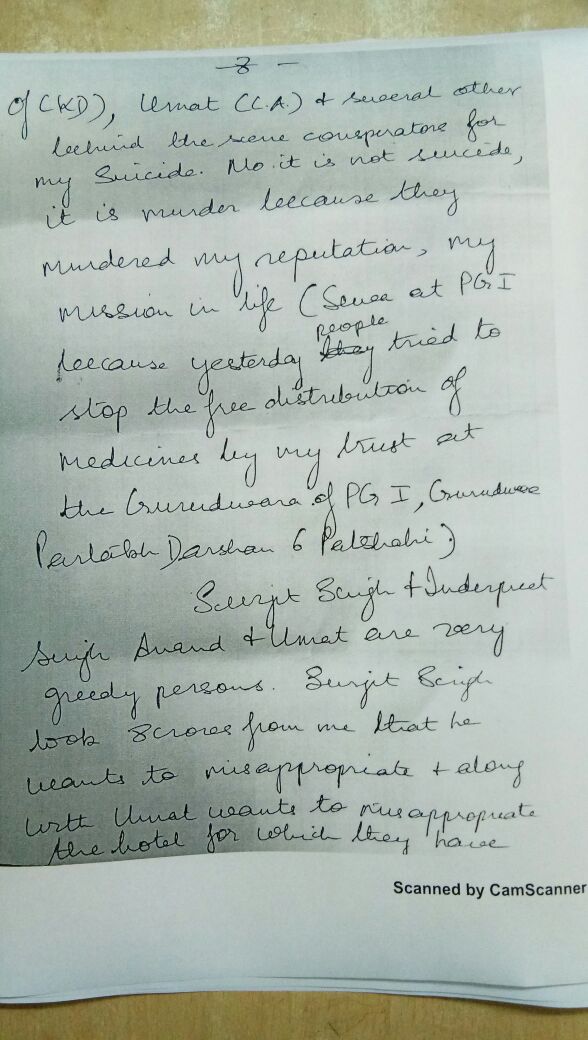 - 8 -
of CKD), Umat (C.A.) & several other
behind the scene conspirators for
my Suicide. No it is not suicide,
it is murder because they
murdered my reputation, my
mission in life (Sewa at PGI
because yesterday people tried to
stop the free distribution of
medicines by my trust at
the Gurudwara of PGI, Gurudwara
Darshan 6 Patshahi)
Surjit Singh & Inderpreet
Singh Anand & Umat are very
greedy persons. Surjit Singh
took 8 crores from me that he
wants to misappropriate & along
with Umat wants to misappropriate
the hotel for which they have
Scanned by CamScanner